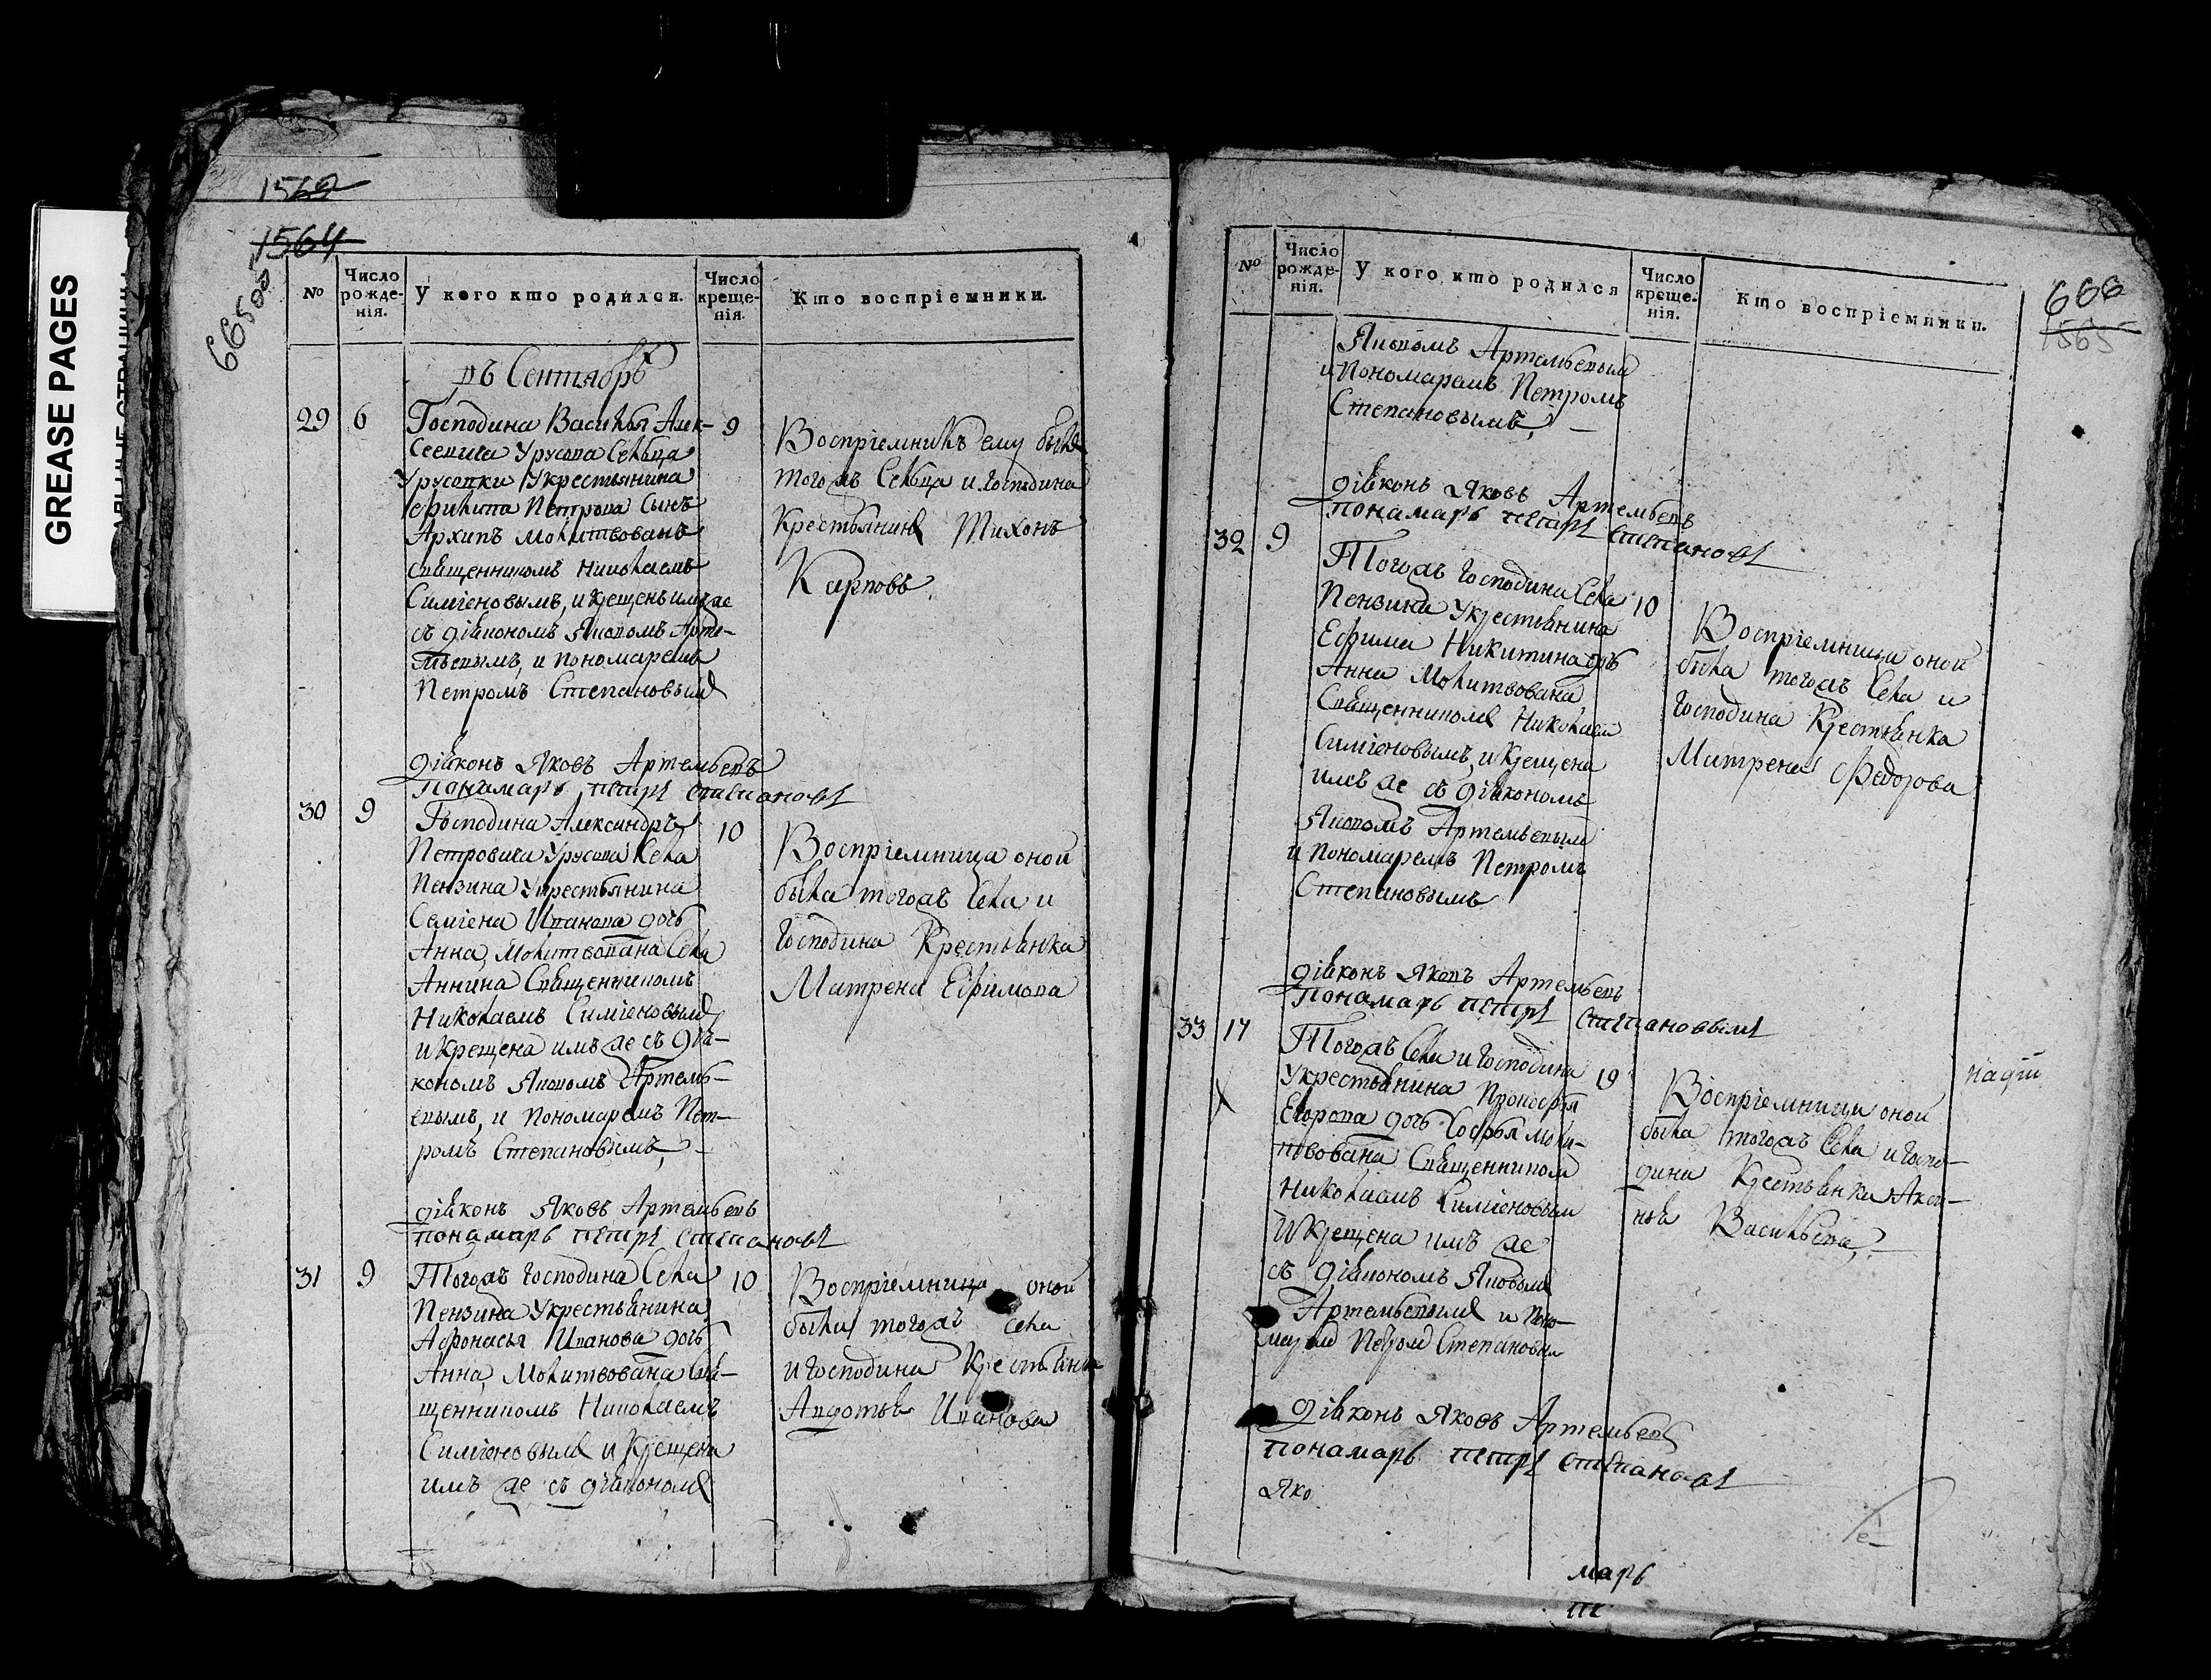 GREASE PAGES
1562
1564
665об
№
Число рожде-нія.
У кого кто родился.
Число креще-нія.
Кто воспріемники.
въ Сентябрѣ
29 6 Господина Василья Алек- 9
сеевича Урусова Сельца
Урусовки Укрестьянина
Филипа Петрова сынъ
Архипъ молитвованъ
священникомъ Николаемъ
Симіеновымъ, и крещенъ имъ же
съ діакономъ Яковомъ Арте-
мьевымъ, и пономаремъ
Петромъ Степановымъ
Воспріемникъ ему былъ
тогожъ Сельца и господина
Крестьянинъ Тихонъ
Карповъ
діаконъ Яковъ Артемьевъ
Понамарь петръ степановъ
30 9 Господина Александръ 10
Петровича Урусова Села
Пензина Укрестьянина
Семіена Иванова дочь
Анна, Молитвована Села
Аннина Священникомъ
Николаемъ Симіеновымъ
и Крещена имъ же съ діа-
кономъ Яковомъ Артемь-
евымъ, и пономаремъ Пет-
ромъ Степановымъ,
Воспріемница оной
была тогожъ Села и
Господина Крестьянка
Матрена Ефимова
діаконъ Яковъ Артемьевъ
понамарь петръ степановъ
31 9 Тогожъ господина Села 10
Пензина Укрестьянина
Афонасья Иванова дочь
Анна, Молитвована Свя-
щенникомъ Николаемъ
Симіеновымъ и Крещена
имъ же съ діакономъ
Воспріемница оной
была тогожъ Села
и господина Крестьянка
Авдотья Иванова
666
1565
№
Число рожде-нія.
У кого кто родился
Число креще-нія.
Кто воспріемники.
Яковомъ Артемьевымъ
и Пономаремъ Петромъ
Степановымъ,
діаконъ Яковъ Артемьевъ
понамарь петръ степановъ
32 9 Тогожъ господина Села 10
Пензина Укрестьянина
Ефима Никитина дочь
Анна Молитвована
Священникомъ Николаем
Симіеновымъ, и Крещена
имъ же съ діакономъ
Яковомъ Артемьевым
и Пономаремъ Петромъ
Степановымъ
Воспріемница оной
была тогожъ Села и
господина Крестьянка
Матрена Федорова
діаконъ Яковъ Артемьевъ
понамарь петръ степановымъ
33 17 Тогожъ Села и господина 19
Укрестьянина Прокофья
Егорова дочь Софья моли-
твована Священником
Николаемъ Симіеновым
и Крещена имъ же
съ діакономъ Яковымъ
Артемьевымъ и поно-
маремъ Петромъ Степановым
Воспріемница оной
была тогожъ Села и госпо-
дина Крестьянка Аксі-
нья Васильева,
діаконъ Яковъ Артемьевъ
понамарь петръ степановъ
Яко
марь
пе